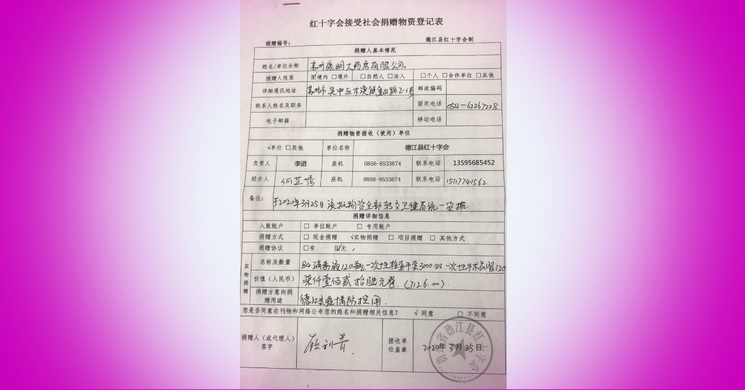 红十字会接受社会捐赠物资登记表
捐赠编号： 德江县红十字会制
捐赠人基本情况
姓名/单位名称 苏州康明大药房有限公司
捐赠人性质 ☑境内 □境外 □自然人 □法人 □个人 □合作单位 □其他
详细通讯地址 苏州市吴中区木渎镇金山路2-1号 邮政编码
联系人姓名及职务 固定电话 0512-66267228
电子邮箱 移动电话
捐赠物资接收（使用）单位
√单位 □其他 单位名称 德江县红十字会
负责人 李进 座机 0856-8533674 联系电话 13595685452
经办人 座机 0856-8533674 联系电话 15117741562
备注： 于2020年3月25日该批物资全部转交卫健局统一安排
捐赠详细信息
入账账户 □单位账户 □专用账户
捐赠方式 □现金捐赠 √实物捐赠 □项目捐赠 □其他方式
捐赠协议 □有 ☑无
实物捐赠
名称及数量 84消毒液120瓶、一次性 手套3000 一次性手术衣 120
价值（人民币） 柒仟壹佰贰拾 元整（7126.00）
捐赠方意向捐赠用途 德江县疫情防控用
您是否同意在刊物和网络公布您的姓名和捐赠相关信息？ √同意 □不同意
捐赠人（或代理人）签字 接收单位盖章 2020年3月25日
德江县红十字会